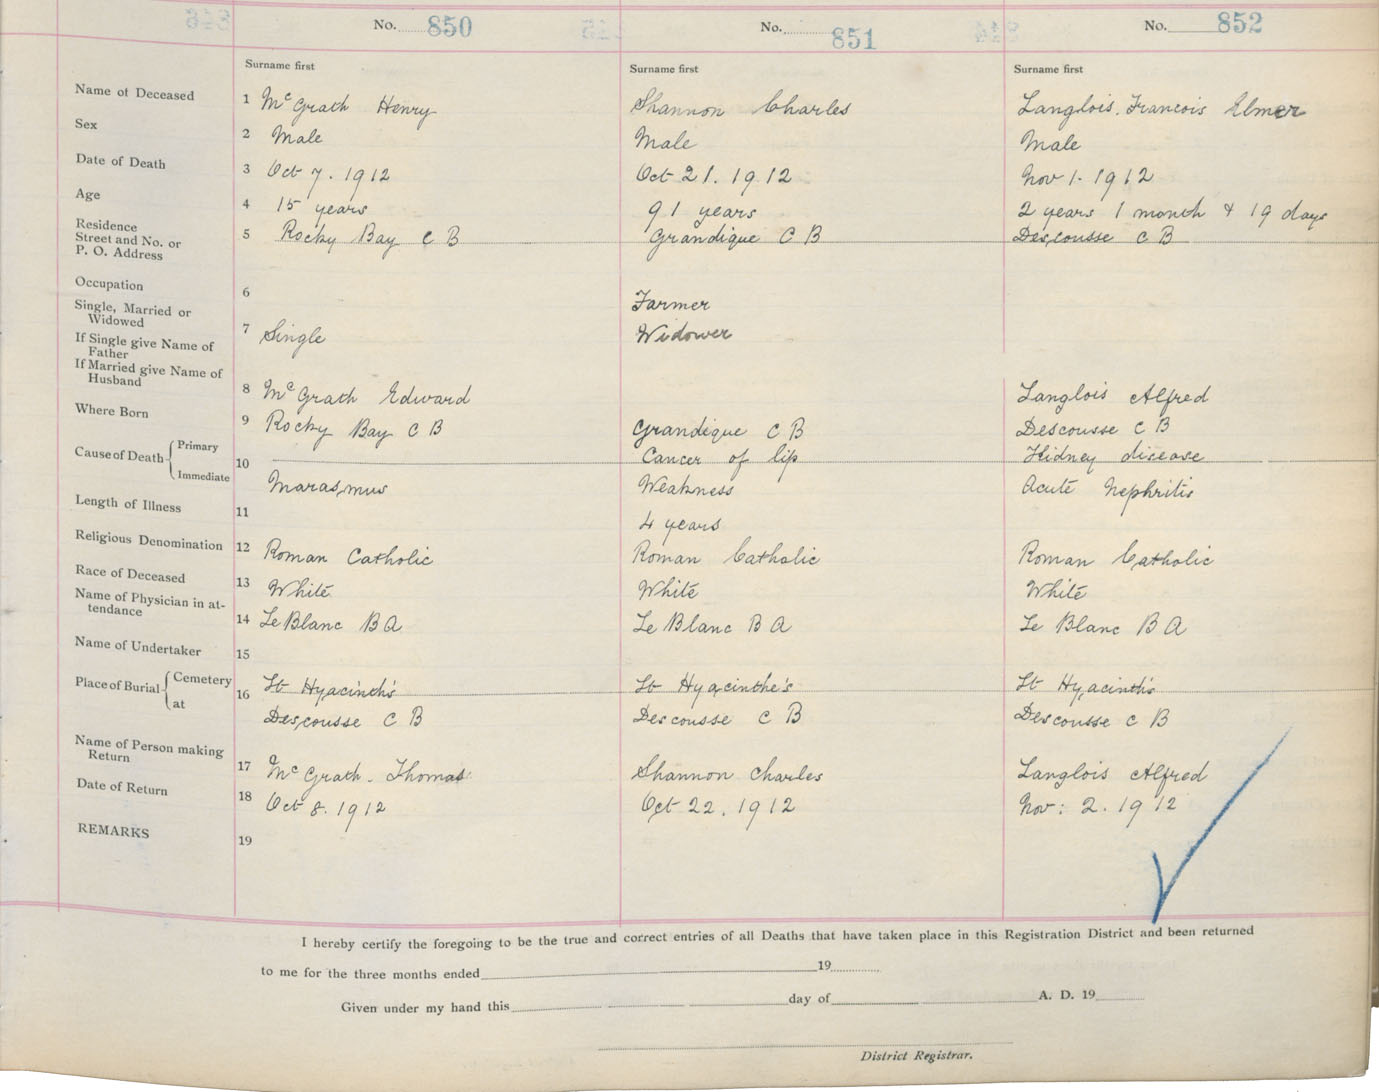 No. 850 No. 851 No. 852
Surname first Surname first Surname first
Name of Deceased 1 McGrath Henry Shannon Charles Langlois, Francois Elmer
Sex 2 Male Male Male
Date of Death 3 Oct 7. 1912 Oct 21. 1912 Nov 1. 1912
Age 4 15 years 91 years 2 years 1 month & 19 days
Residence
Street and No. or 5 Rocky Bay C B Grandique C B Descousse C B
P. O. Address
Occupation 6 Farmer
Single, Married or
Widowed 7 Single Widower
If Single give Name of
Father
If Married give Name of
Husband 8 McGrath Edward Langlois Alfred
Where Born 9 Rocky Bay C B Grandique C B Descousse C B
Cause of Death Primary 10 Cancer of lip Kidney disease
Immediate Marasmus Weakness Acute Nephritis
Length of Illness 11 4 years
Religious Denomination 12 Roman Catholic Roman Catholic Roman Catholic
Race of Deceased 13 White White White
Name of Physician in at-
tendance 14 LeBlanc B A Le Blanc B A Le Blanc B A
Name of Undertaker 15
Place of Burial Cemetery 16 St Hyacinth's St Hyacinthe's St Hyacinth's
at Descousse C B Descousse C B Descousse C B
Name of Person making
Return 17 McGrath. Thomas Shannon Charles Langlois Alfred
Date of Return 18 Oct 8. 1912 Oct 22. 1912 Nov: 2. 1912
REMARKS 19
I hereby certify the foregoing to be the true and correct entries of all Deaths that have taken place in this Registration District and been returned
to me for the three months ended 19
Given under my hand this day of A. D. 19
District Registrar.